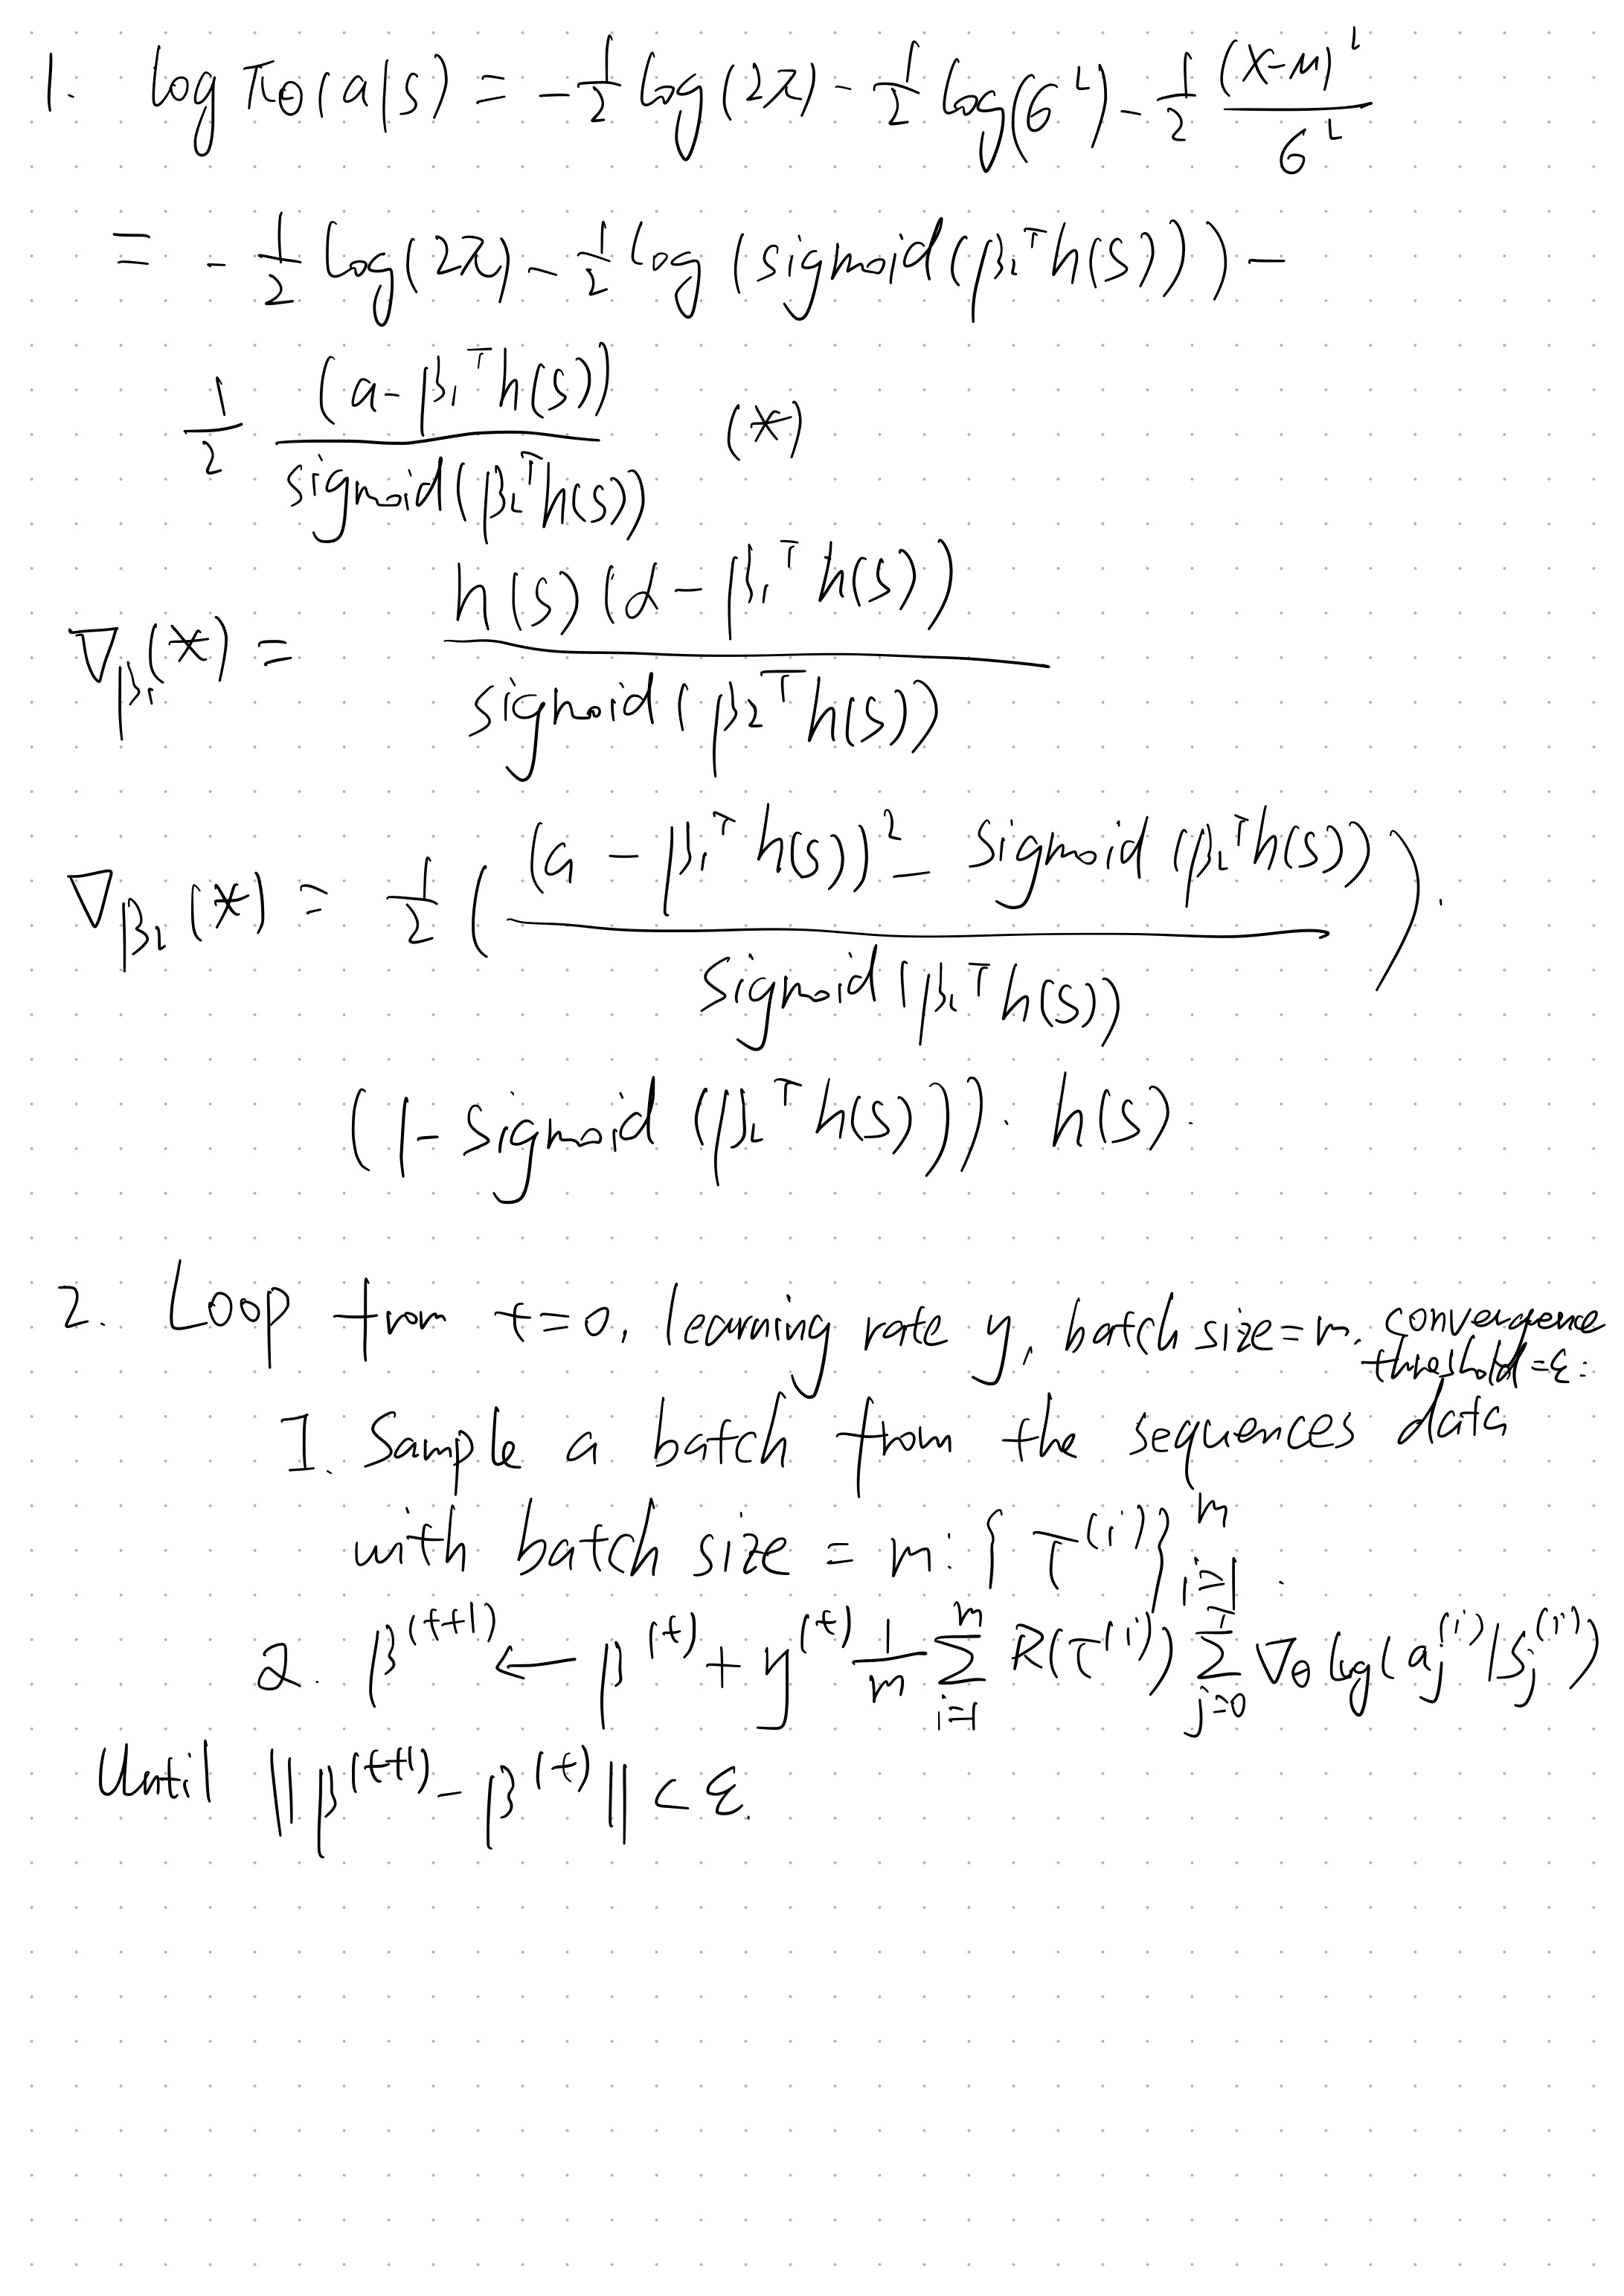 1. log π_θ(a|s) = -1/2 log(2π) - 1/2 log(σ²) - 1/2 (x-μ)²/σ²
= - 1/2 log(2π) - 1/2 log (sigmoid(β₂ᵀh(s))) -
1/2 (a-β₁ᵀh(s))/sigmoid(β₂ᵀh(s)) (*)
∇_β₁(*) = h(s)(a-β₁ᵀh(s))/sigmoid(β₂ᵀh(s))
∇_β₂(*) = 1/2 ( ((a - β₁ᵀh(s))² - sigmoid(β₂ᵀh(s)))/sigmoid(β₂ᵀh(s)) ) ·
(1-sigmoid(β₂ᵀh(s))) · h(s).
2. Loop from t=0, learning rate η, batch size=m, convergence
threshold=ε:
1. Sample a batch from the sequences data
with batch size = m: {τ^(i)}_{i=1}^m.
2. β^(t+1) ← β^(t) + η^(t) 1/m Σ_{i=1}^m R(τ^(i)) Σ_{j=0}^T ∇_θ log(a_j^(i)|s_j^(i))
Until ||β^(t+1) - β^(t)|| < ε.